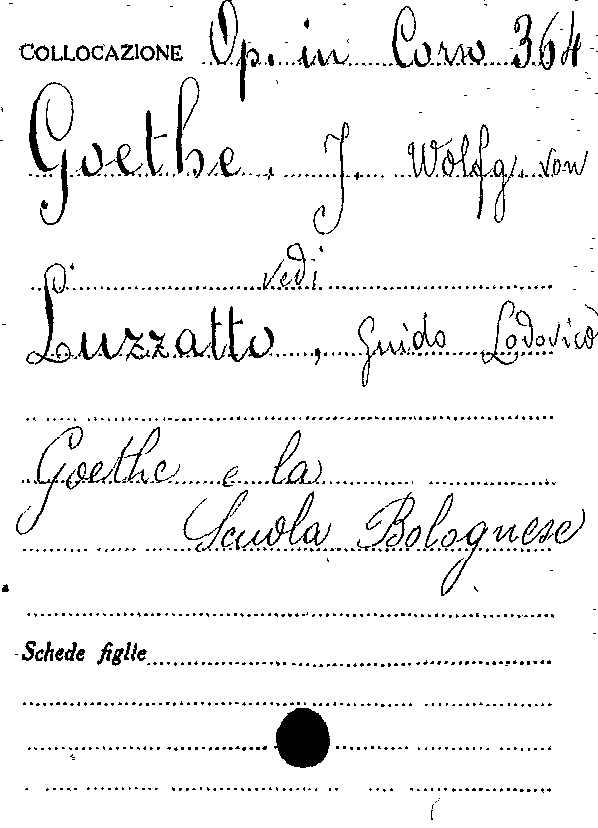 COLLOCAZIONE Op. in Corso 364
Goethe, J. Wolfg. von
vedi
Luzzatto, Guido Lodovico
Goethe e la
Scuola Bolognese
Schede figlie